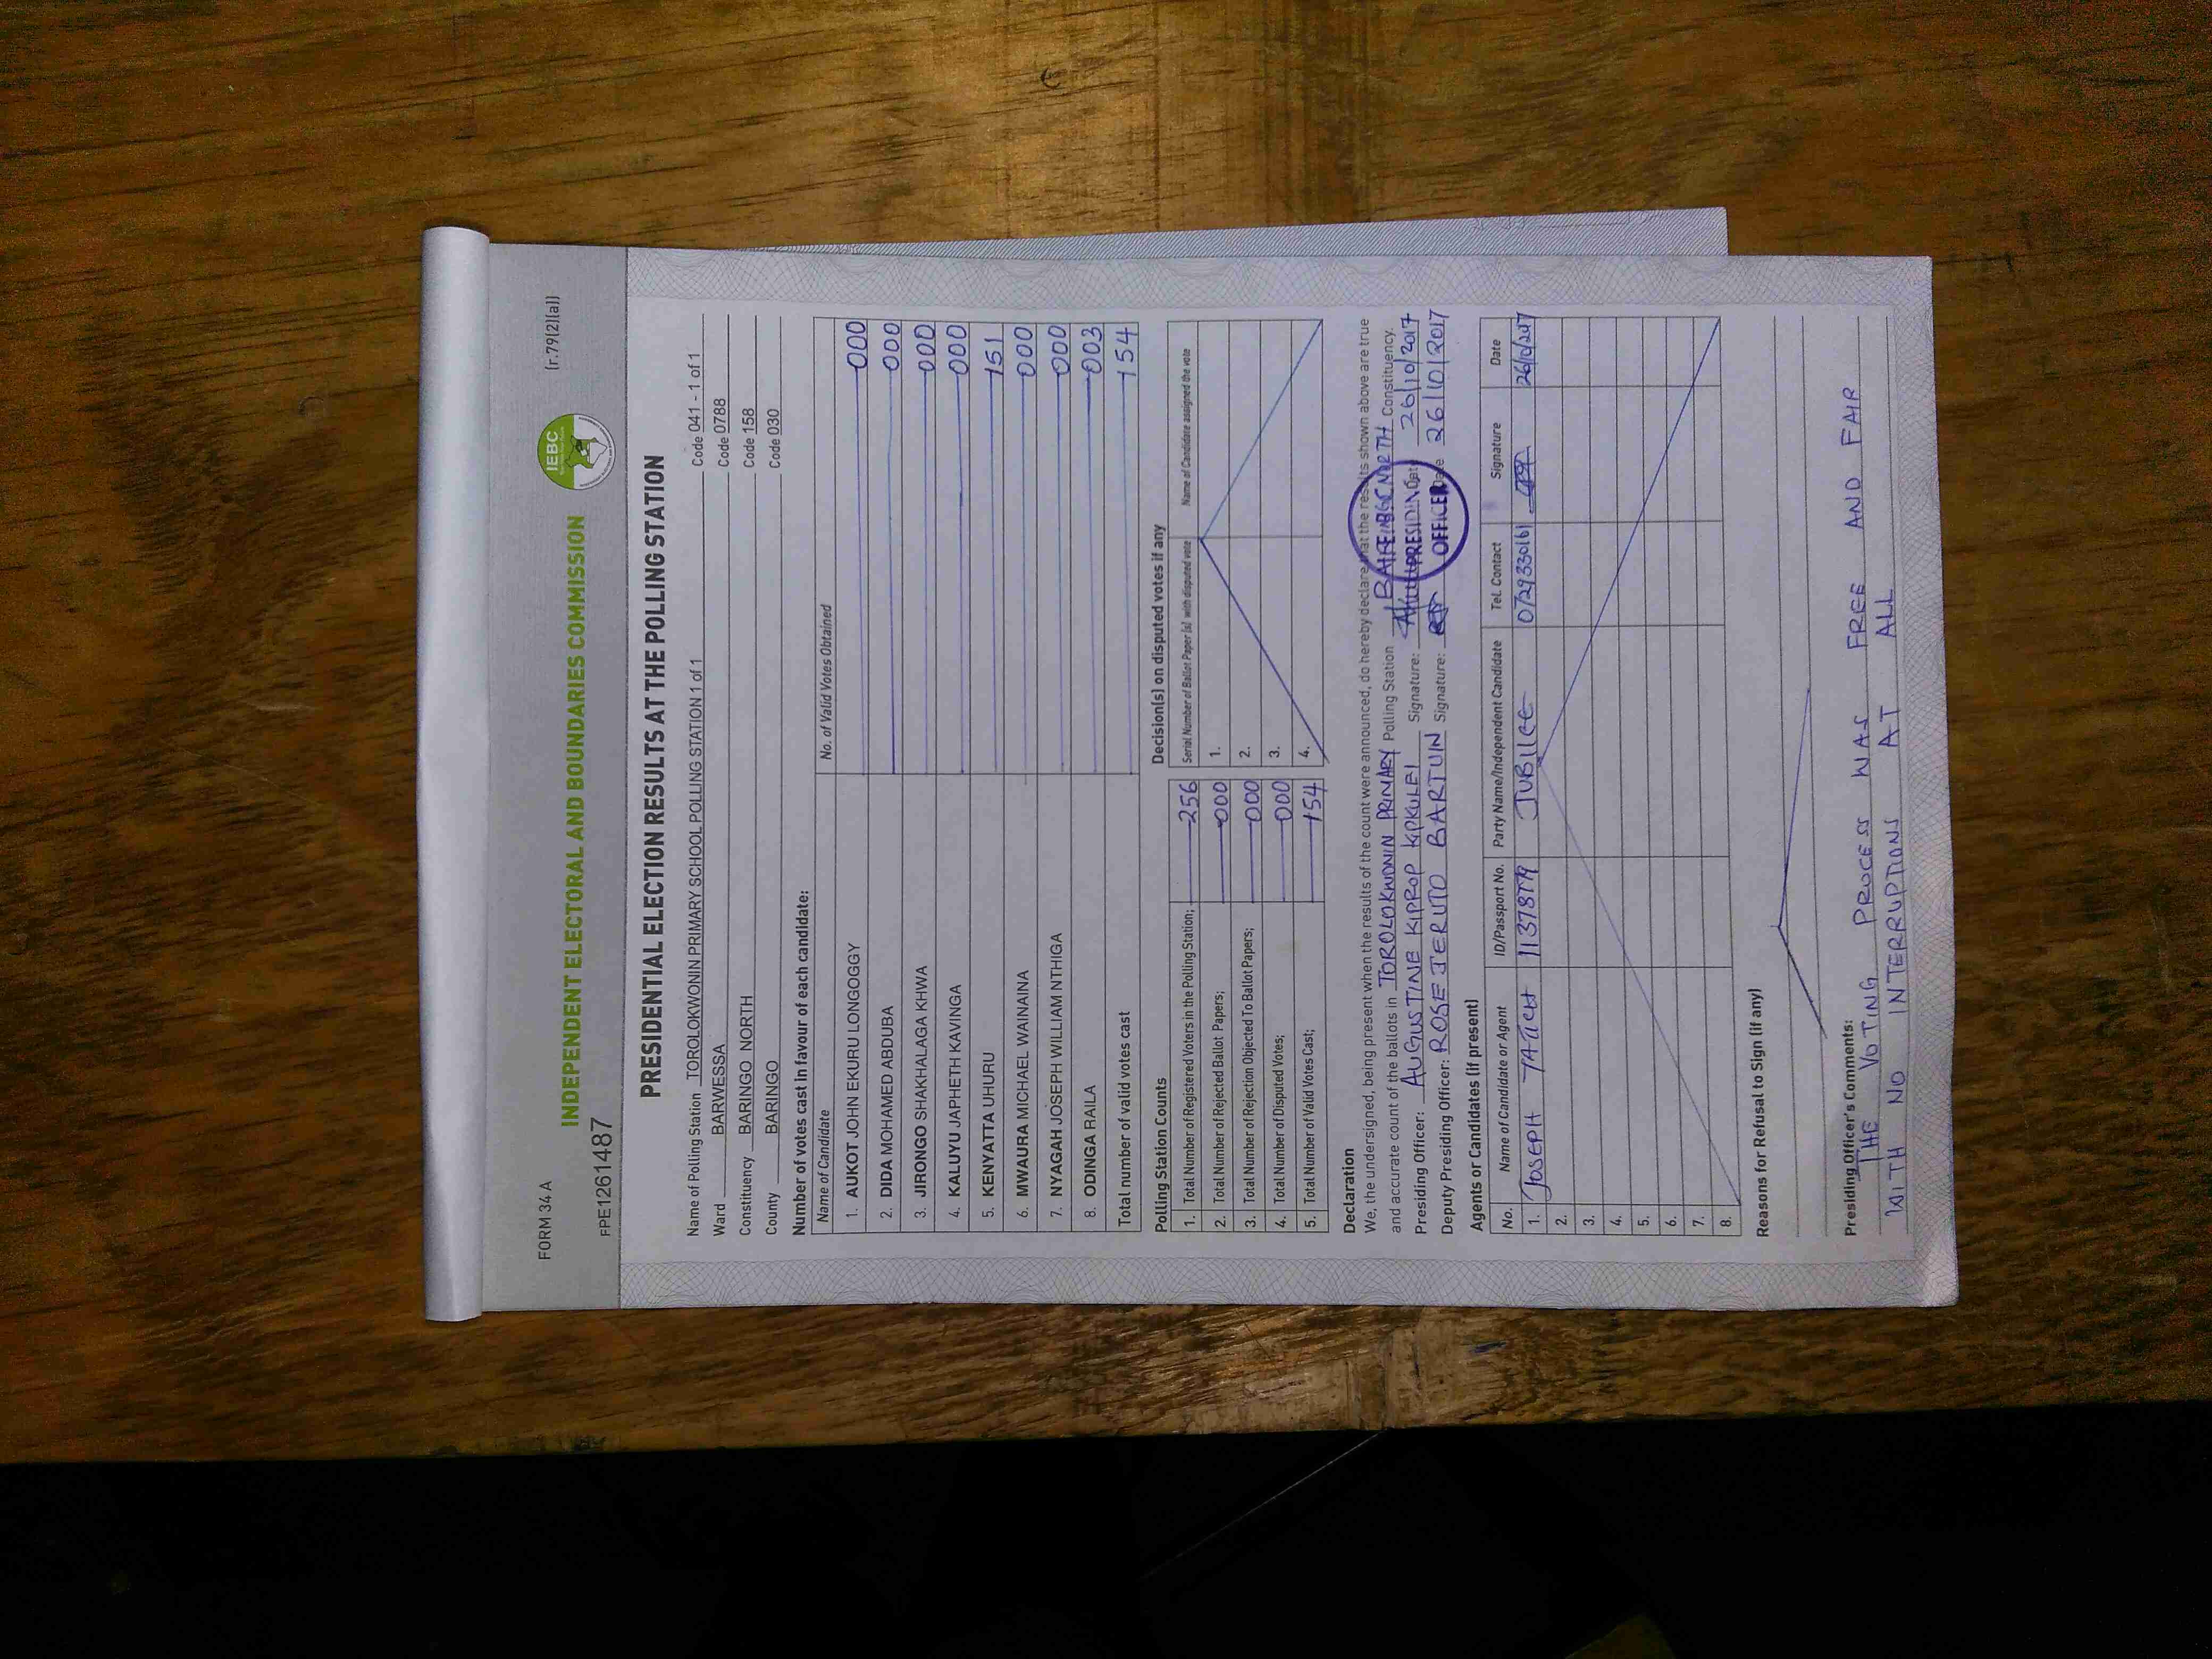 FORM 34 A
INDEPENDENT ELECTORAL AND BOUNDARIES COMMISSION
IEBC
(r.79(2)(a))
F-PE1261487
PRESIDENTIAL ELECTION RESULTS AT THE POLLING STATION
Name of Polling Station TOROLOKWONIN PRIMARY SCHOOL POLLING STATION 1 of 1 Code 041 - 1 of 1
Ward BARWESSA Code 0788
Constituency BARINGO NORTH Code 158
County BARINGO Code 030
Number of votes cast in favour of each candidate:
Name of Candidate No. of Valid Votes Obtained
1. AUKOT JOHN EKURU LONGOGGY 000
2. DIDA MOHAMED ABDUBA 000
3. JIRONGO SHAKHALAGA KHWA 000
4. KALUYU JAPHETH KAVINGA 000
5. KENYATTA UHURU 151
6. MWAURA MICHAEL WAINAINA 000
7. NYAGAH JOSEPH WILLIAM NTHIGA 000
8. ODINGA RAILA 003
Total number of valid votes cast 154
Polling Station Counts
1. Total Number of Registered Voters in the Polling Station; 256
2. Total Number of Rejected Ballot Papers; 000
3. Total Number of Rejection Objected To Ballot Papers; 000
4. Total Number of Disputed Votes; 000
5. Total Number of Valid Votes Cast; 154
Decision(s) on disputed votes if any
Serial Number of Ballot Paper (s) with disputed vote Name of Candidate assigned the vote
1.
2.
3.
4.
Declaration
We, the undersigned, being present when the results of the count were announced, do hereby declare that the results shown above are true
and accurate count of the ballots in TOROLOKWONIN PRIMARY Polling Station NORTH Constituency.
Presiding Officer: AUGUSTINE KIPROP KIPKULEI Signature: Date 26/10/2017
Deputy Presiding Officer: ROSE JERUTO BARTUIN Signature: Date 26/10/2017
PRESIDING
OFFICER
Agents or Candidates (if present)
No. Name of Candidate or Agent ID/Passport No. Party Name/Independent Candidate Tel. Contact Signature Date
1. JOSEPH JUBILEE 0729330161 26/10/2017
2.
3.
4.
5.
6.
7.
8.
Reasons for Refusal to Sign (if any)
Presiding Officer's Comments:
THE VOTING PROCESS WAS FREE AND FAIR
WITH NO INTERRUPTIONS AT ALL